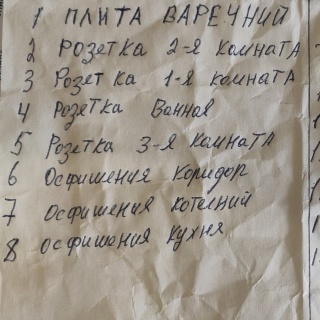 1 ПЛИТА ВАРЕЧНИЙ
2 РОЗЕТКА 2-Я КОМНАТА
3 Розетка 1-я комната
4 Розетка Ванная
5 Розетка 3-я комната
6 Осфишения Коридор
7 Осфишения котелний
8 осфишания кухня